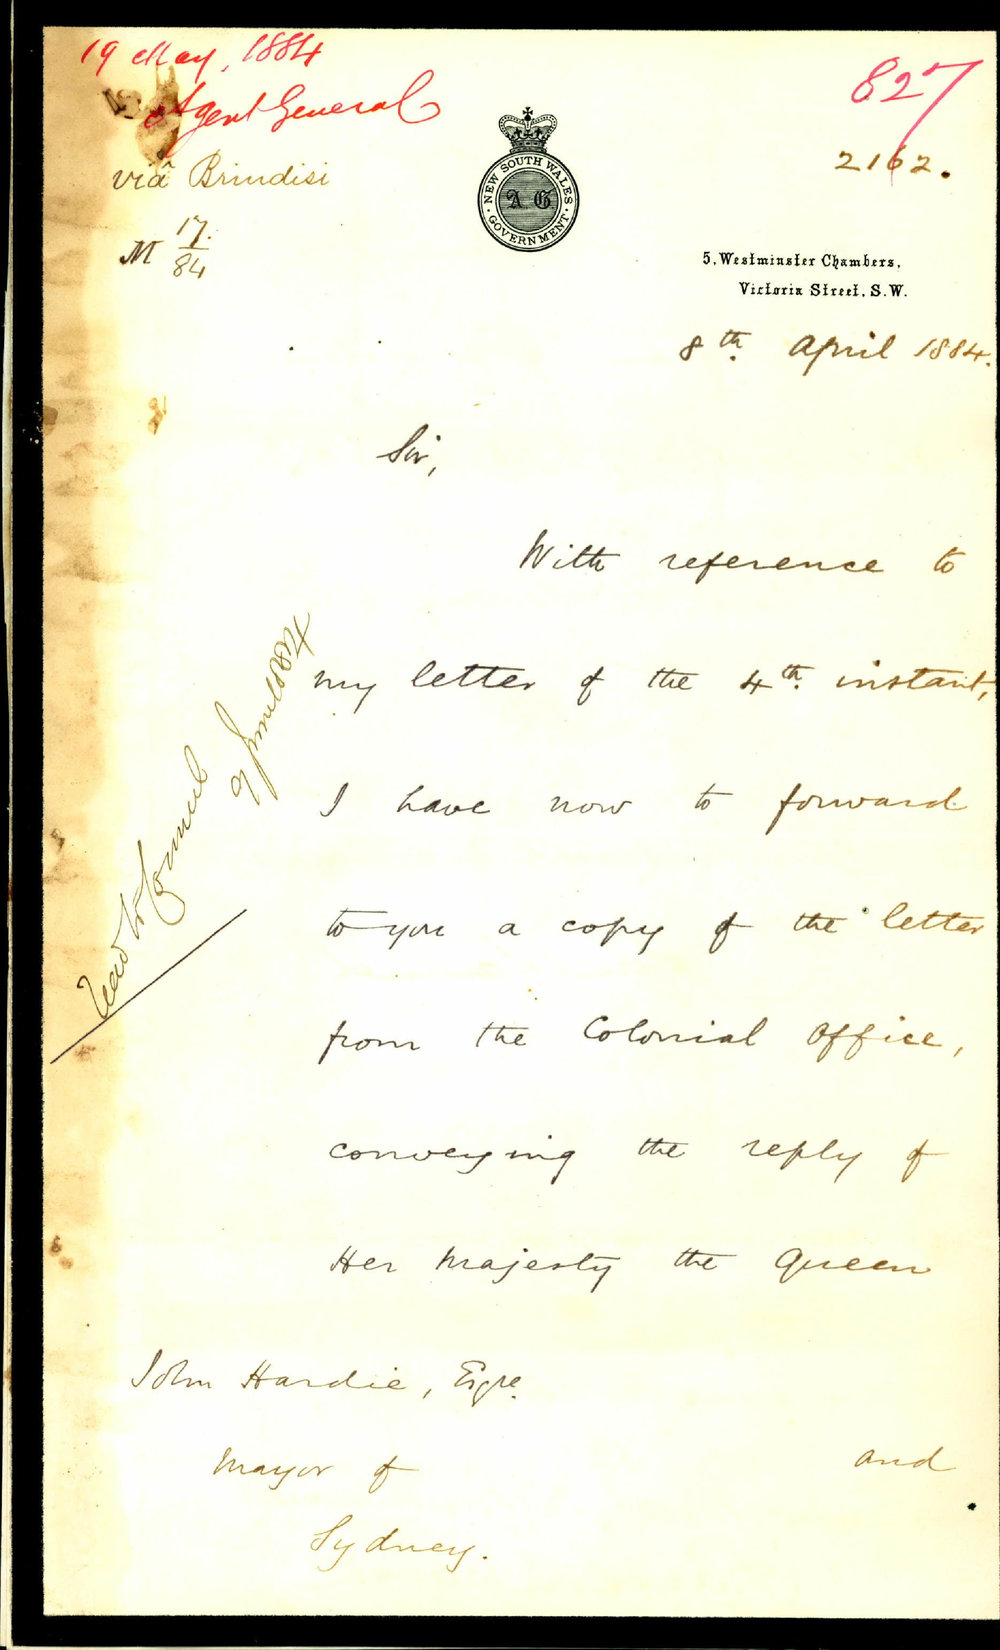 19 May, 1884
Agent General
827
viâ Brindisi
2162.
M 17/84
NEW SOUTH WALES
A. G.
GOVERNMENT
5, Westminster Chambers,
Victoria Street, S.W.
8th. April 1884.
Sir,
With reference to
my letter of the 4th. instant,
I have now to forward
to you a copy of the letter
from the Colonial Office,
conveying the reply of
Her Majesty the Queen
John Hardie, Esqre.
Mayor of
Sydney.
and
Read to Council
9 June 1884